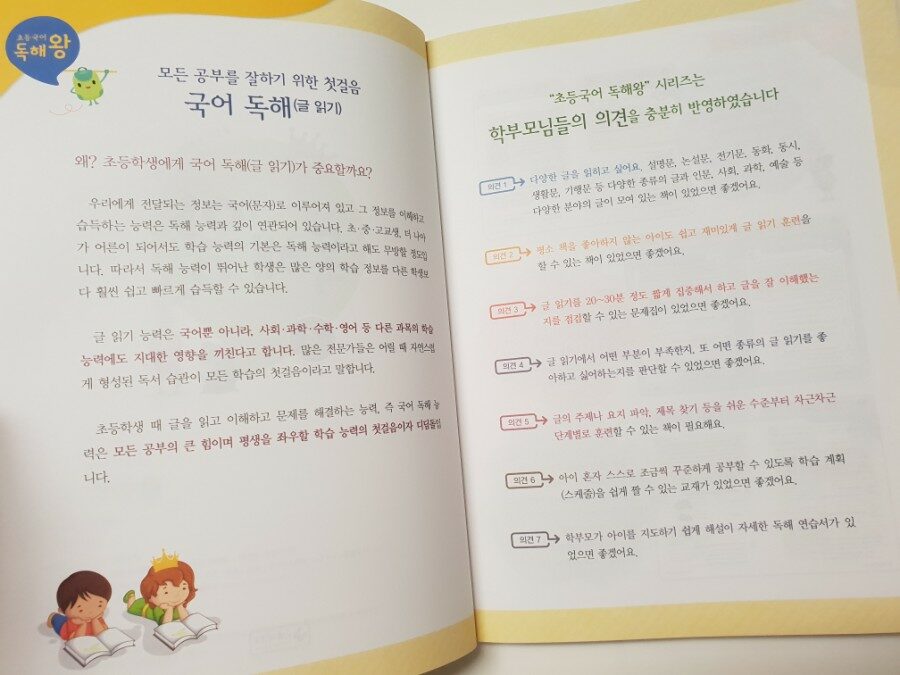 초등국어
독해왕
모든 공부를 잘하기 위한 첫걸음
국어 독해(글 읽기)
왜? 초등학생에게 국어 독해(글 읽기)가 중요할까요?
우리에게 전달되는 정보는 국어(문자)로 이루어져 있고 그 정보를 이해하고
습득하는 능력은 독해 능력과 깊이 연관되어 있습니다. 초·중·고교생, 더 나아
가 어른이 되어서도 학습 능력의 기본은 독해 능력이라고 해도 무방할 정도입
니다. 따라서 독해 능력이 뛰어난 학생은 많은 양의 학습 정보를 다른 학생보
다 훨씬 쉽고 빠르게 습득할 수 있습니다.
글 읽기 능력은 국어뿐 아니라, 사회·과학·수학·영어 등 다른 과목의 학습
능력에도 지대한 영향을 끼친다고 합니다. 많은 전문가들은 어릴 때 자연스럽
게 형성된 독서 습관이 모든 학습의 첫걸음이라고 말합니다.
초등학생 때 글을 읽고 이해하고 문제를 해결하는 능력, 즉 국어 독해 능
력은 모든 공부의 큰 힘이며 평생을 좌우할 학습 능력의 첫걸음이자 디딤돌입
니다.
"초등국어 독해왕" 시리즈는
학부모님들의 의견을 충분히 반영하였습니다
의견 1 다양한 글을 읽히고 싶어요. 설명문, 논설문, 전기문, 동화, 동시,
생활문, 기행문 등 다양한 종류의 글과 인문, 사회, 과학, 예술 등
다양한 분야의 글이 모여 있는 책이 있었으면 좋겠어요.
의견 2 평소 책을 좋아하지 않는 아이도 쉽고 재미있게 글 읽기 훈련을
할 수 있는 책이 있었으면 좋겠어요.
의견 3 글 읽기를 20~30분 정도 짧게 집중해서 하고 글을 잘 이해했는
지를 점검할 수 있는 문제집이 있었으면 좋겠어요.
의견 4 글 읽기에서 어떤 부분이 부족한지, 또 어떤 종류의 글 읽기를 좋
아하고 싫어하는지를 판단할 수 있었으면 좋겠어요.
의견 5 글의 주제나 요지 파악, 제목 찾기 등을 쉬운 수준부터 차근차근
단계별로 훈련할 수 있는 책이 필요해요.
의견 6 아이 혼자 스스로 조금씩 꾸준하게 공부할 수 있도록 학습 계획
(스케줄)을 쉽게 짤 수 있는 교재가 있었으면 좋겠어요.
의견 7 학부모가 아이를 지도하기 쉽게 해설이 자세한 독해 연습서가 있
었으면 좋겠어요.